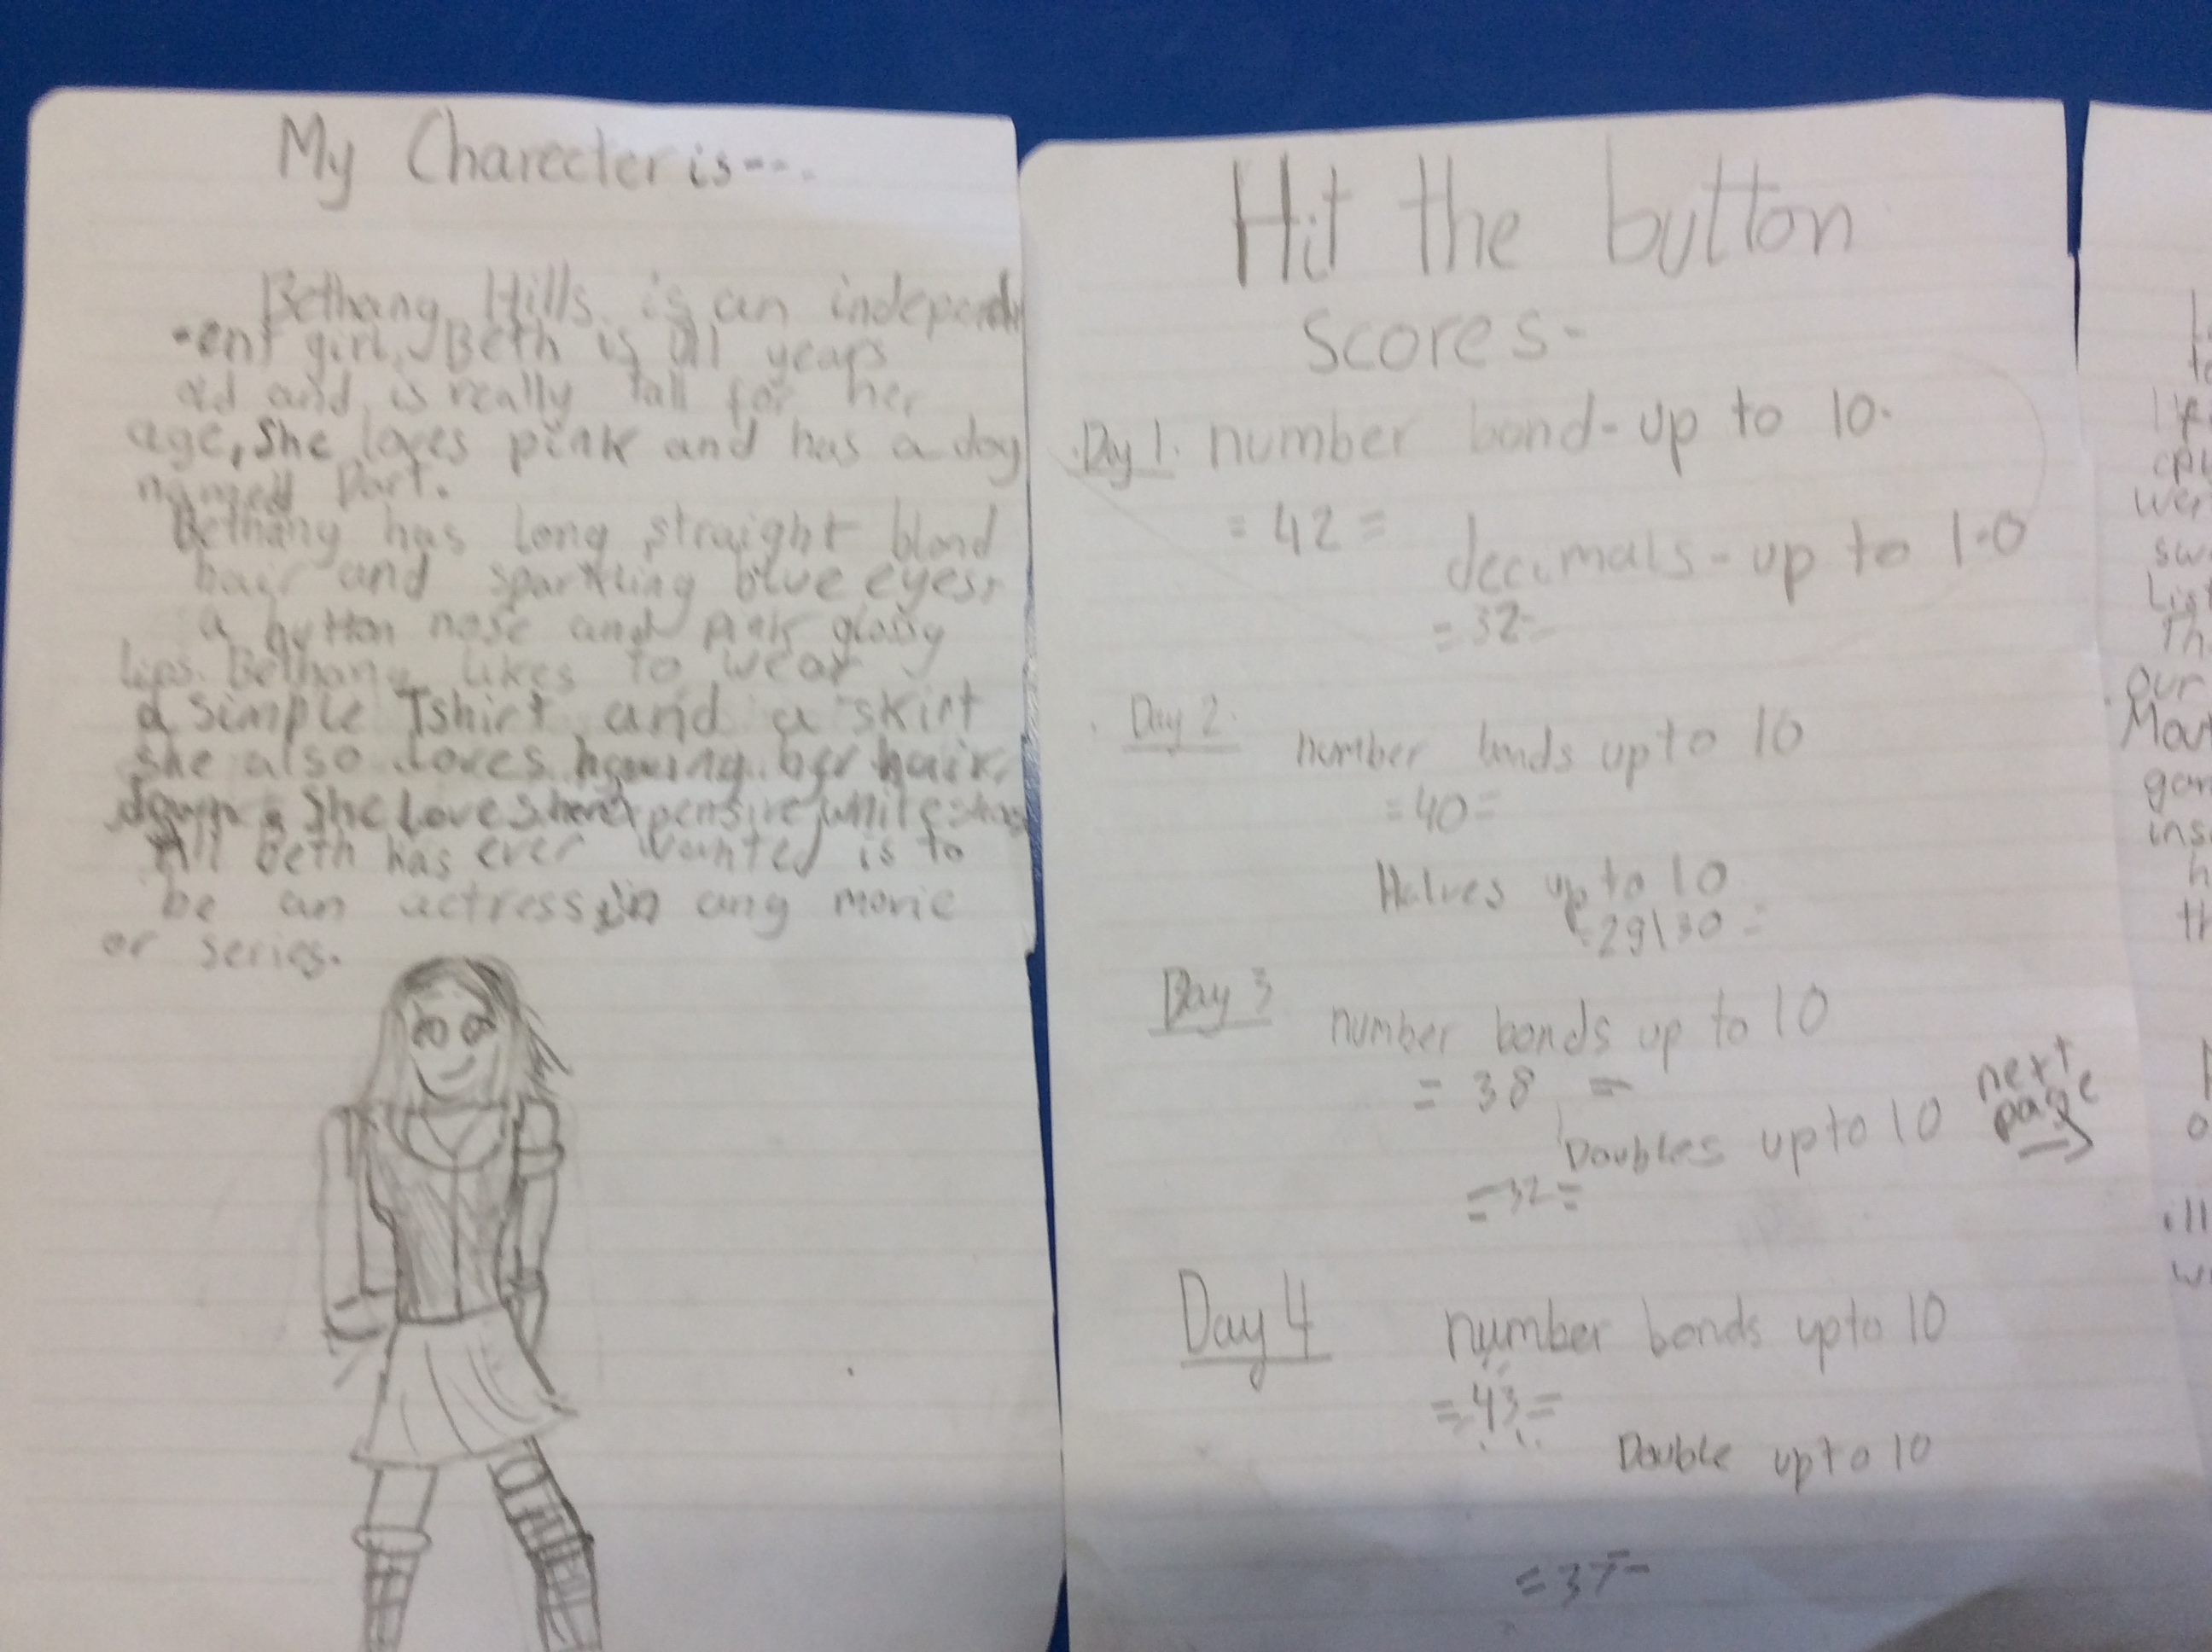 My Charecter is---.
Bethany Hills is an independ
-ent girl. Beth is 11 years
old and is really tall for her
age, She loves pink and has a dog
named Dart.
Bethany has long straight blond
hair and sparkling blue eyes,
a button nose and pink glossy
lips. Bethany likes to wear
a simple Tshirt and a skirt
she also loves having her hair
down. She loves her expensive white
All Beth has ever wanted is to
be an actress in any movie
or series.
Hit the button
scores-
Day 1. number bond-up to 10.
= 42 =
decimals-up to 1.0
= 32-
Day 2.
number bonds up to 10
= 40 =
Halves up to 10
=29\30 =
Day 3
number bonds up to 10
= 38 =
Doubles up to 10
next
page
=32=
Day 4
number bonds upto 10
= 43 =
Double upto 10
=37-
our
ins
ill